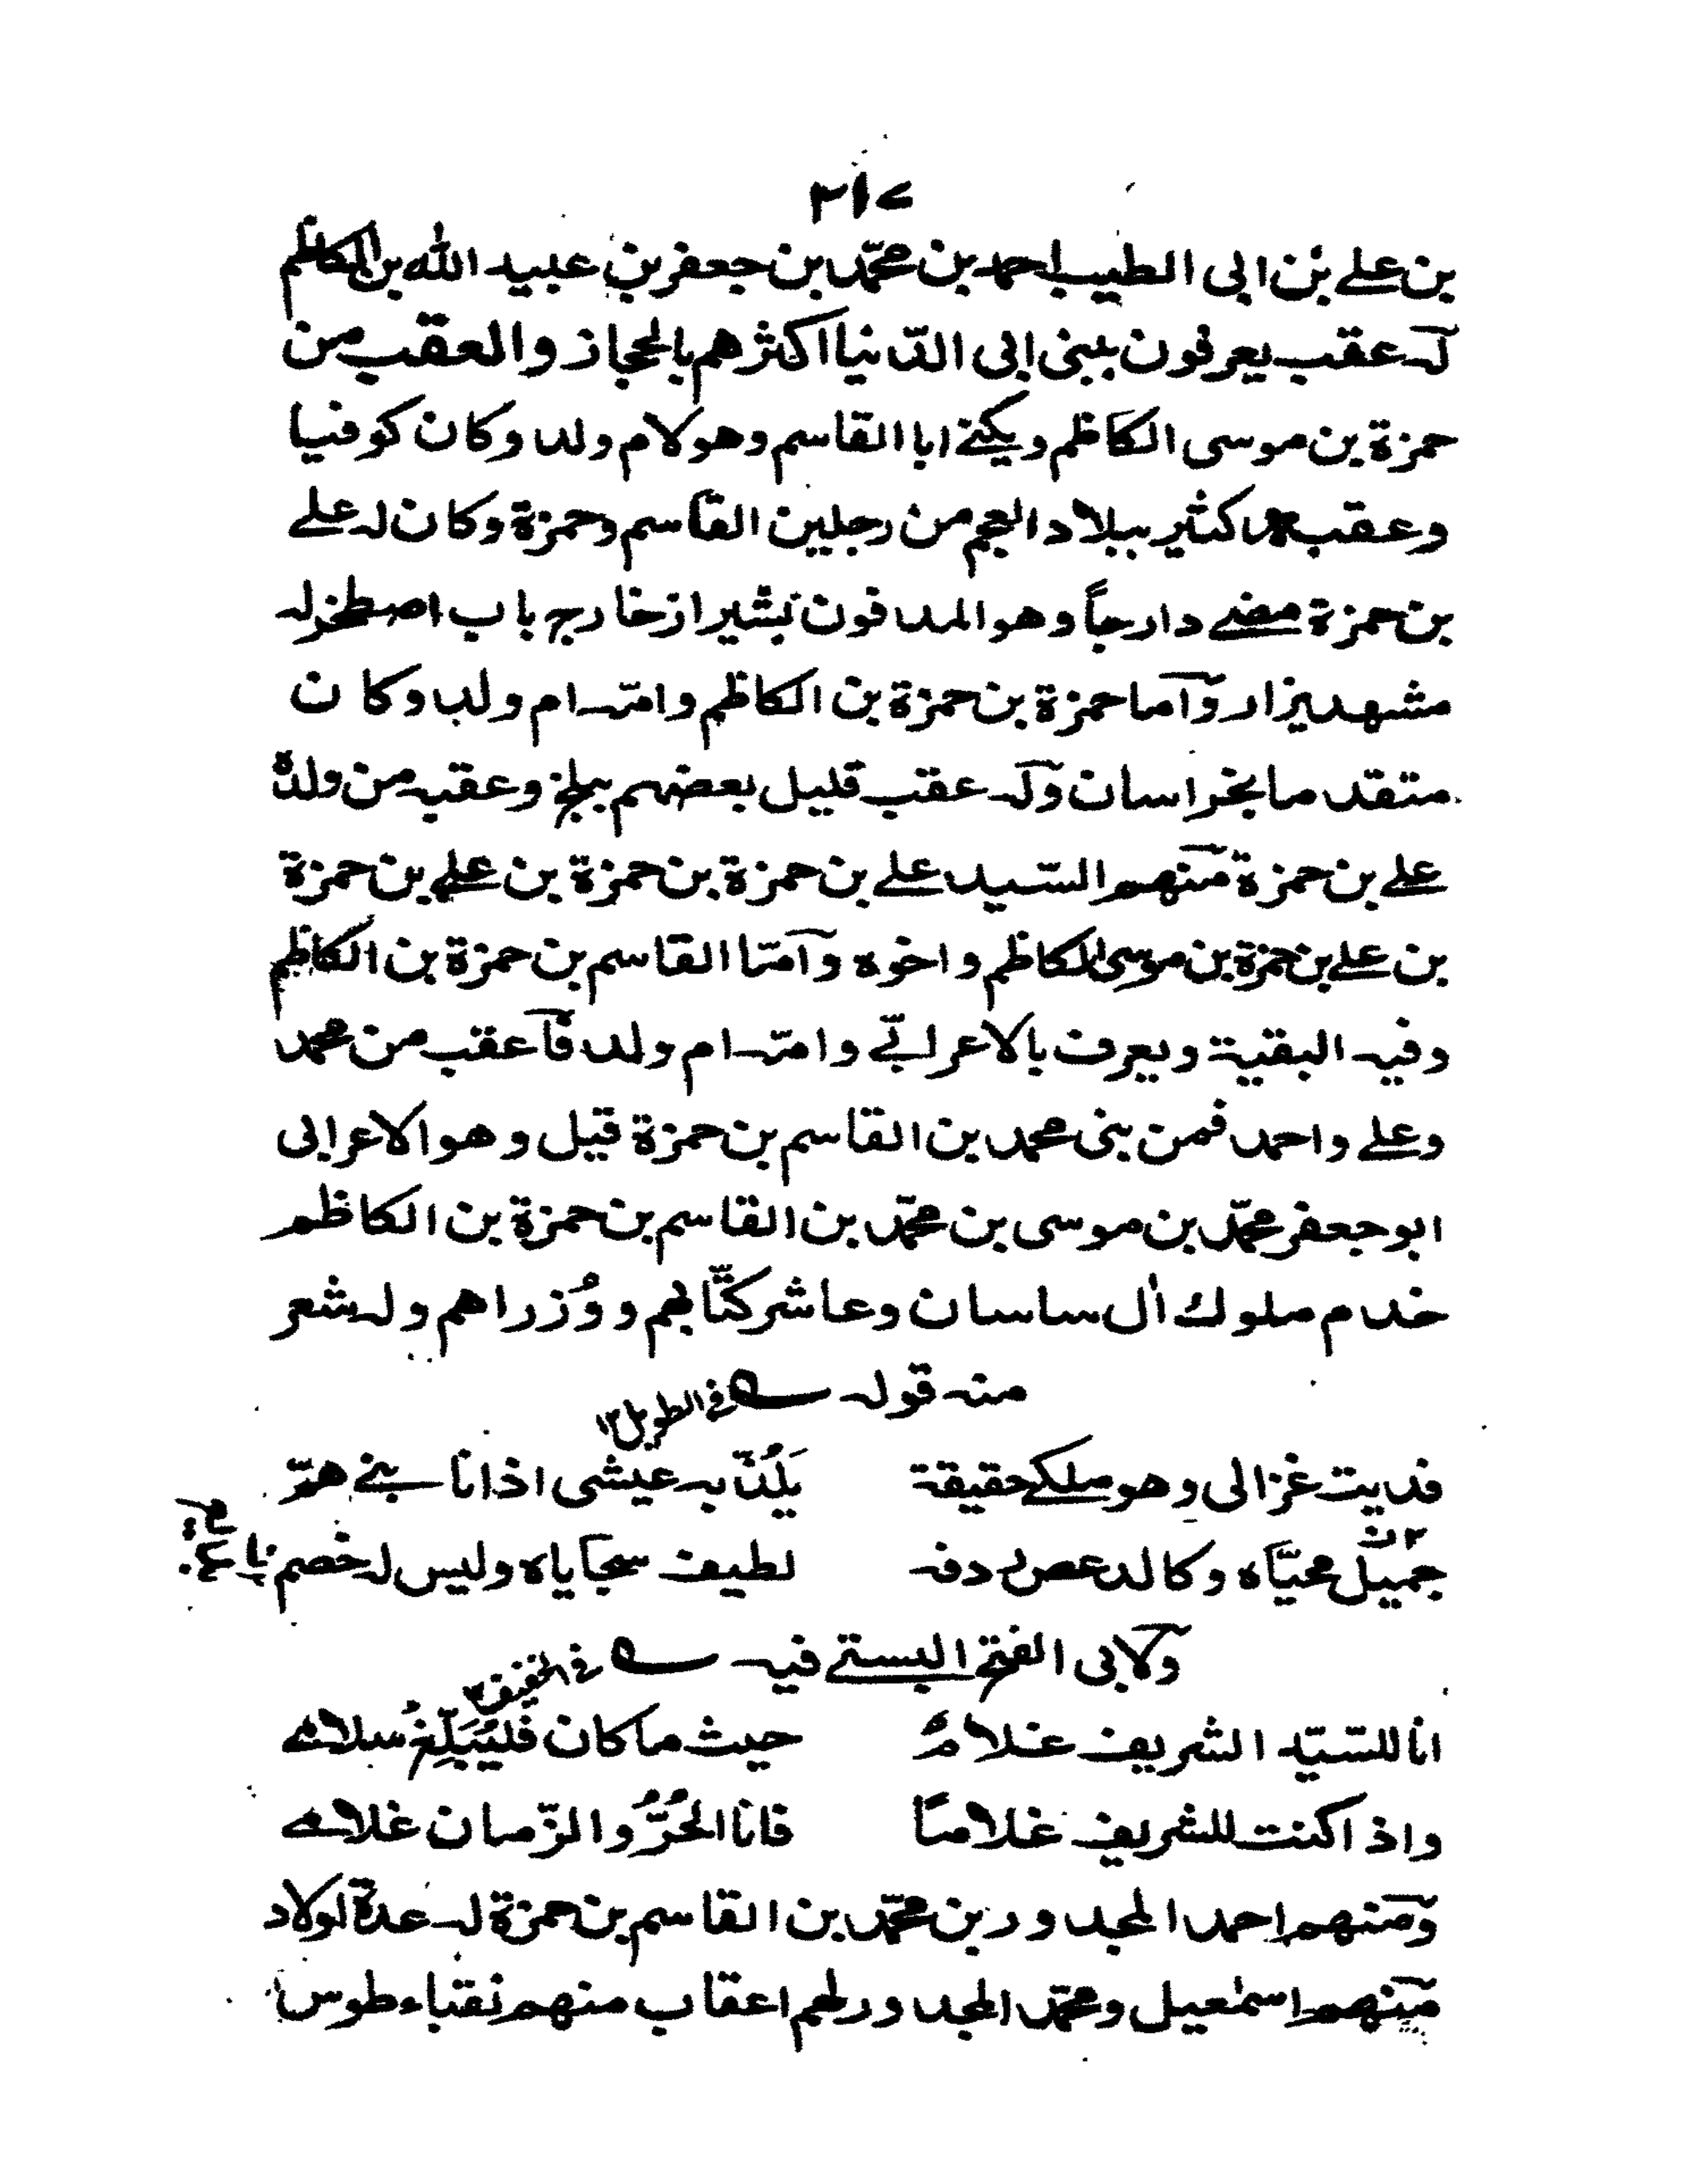 ٢١٧
بن علے بن ابی الطیب احمد بن محمّد بن جعفر بن عبید الله بن الکاظم
لہ عقب یعرفون ببنی ابی الدّنیا اکثرهم بالحجاز والعقب من
حمزة بن موسی الکاظم ویکنے ابا القاسم وهو لام ولد وکان کوفیا
وعقبہ کثیر ببلاد العجم من رجلین القاسم وحمزة وکان لہ علے
بن حمزة مضے دارجاً وهو المدفون بشیراز خارج باب اصطخر لہ
مشهد یزار وآما حمزة بن حمزة بن الکاظم وامّہ ام ولد وکان
متقدما بخراسان ولہ عقب قلیل بعضهم ببلخ وعقبہ من ولدہ
علے بن حمزة منهم السّید علے بن حمزة بن حمزة بن علے بن حمزة
بن علے بن حمزة بن موسی الکاظم واخوه وآمّا القاسم بن حمزة بن الکاظم
وفیہ البقیة ویعرف بالاعرابے وامّہ ام ولد فآعقب من محمد
وعلے واحمد فمن بنی محمد بن القاسم بن حمزة قیل وهو الاعرابی
ابو جعفر محمّد بن موسی بن محمّد بن القاسم بن حمزة بن الکاظم
خدم ملوك اٰل ساسان وعاشر کتّابهم ووُزراهم ولہ شعر
منہ قولہ فی الطویل ١٢
فدیت غزالی وهو ملکے حقیقة یَلُذّ بہ عیشی اذا نابنے همّ
جمیل محیّاہ وکالدعص ردفہ لطیف سجایاہ ولیس لہ خصم
ولابی الفتح البستے فیہ فی الخفیف ١٢
انا للسّیّد الشریف غلامٌ حیث ما کان فَلیُبَلِّغْ سلامے
واذا کنت للشریف غلامًا فانا الحُرُّ والزّمان غلامے
ومنهم احمد المجدور بن محمّد بن القاسم بن حمزة لہ عدة اولاد
منهم اسمٰعیل ومحمّد المجدور لهم اعقاب منهم نقباء طوس